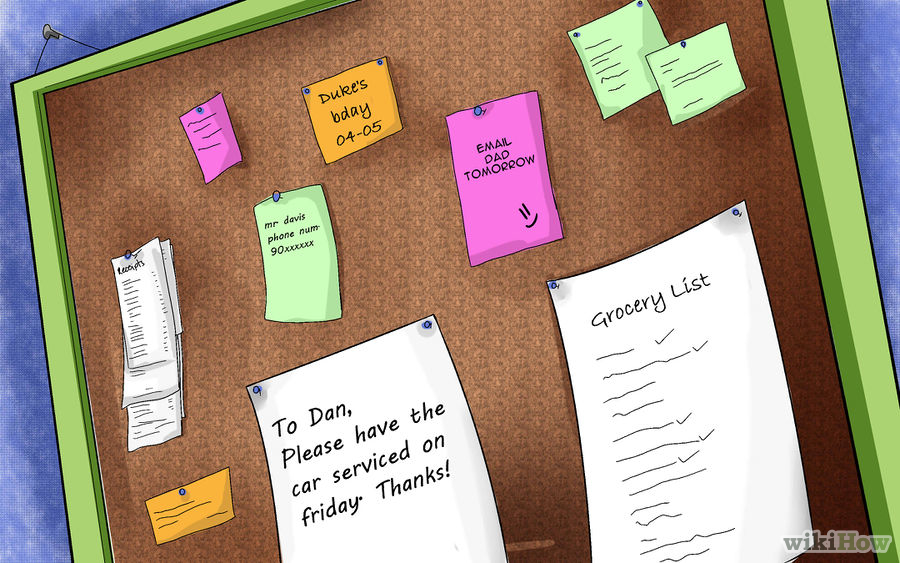 Duke's
bday
04-05
EMAIL
DAD
TOMORROW
mr davis
phone num
90xxxxxx
Receipts
Grocery List
To Dan,
Please have the
car serviced on
friday. Thanks!
wikiHow